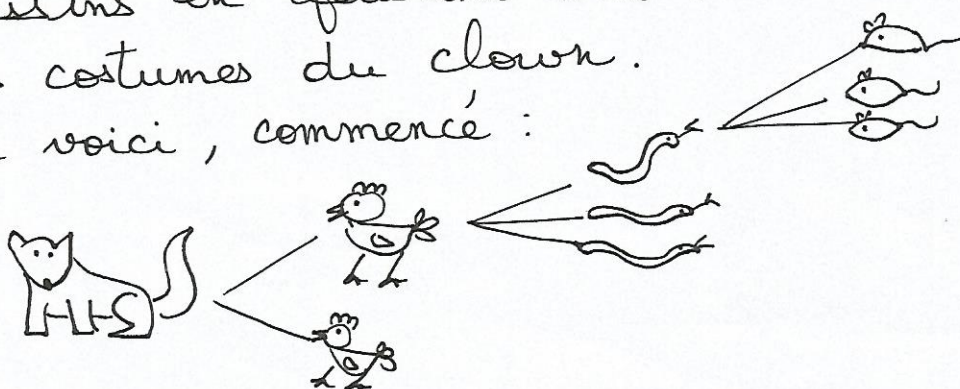 en
costumes du clown.
voici, commencé :